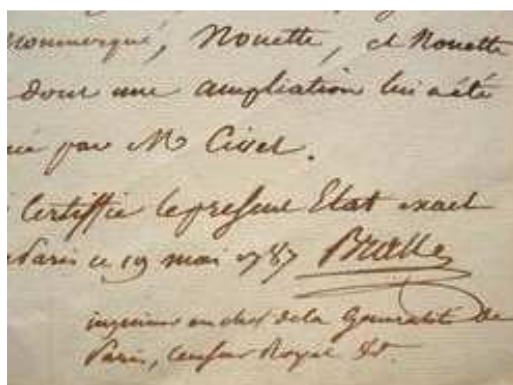 Nouette, et Nouette
dont une ampliation lui a été
par M Civet.
Certiffie le présent Etat exact
Paris ce 19 mai 1787 Bralle
ingenieur en chef de la Generalité de
Paris, Censeur Royal &c.